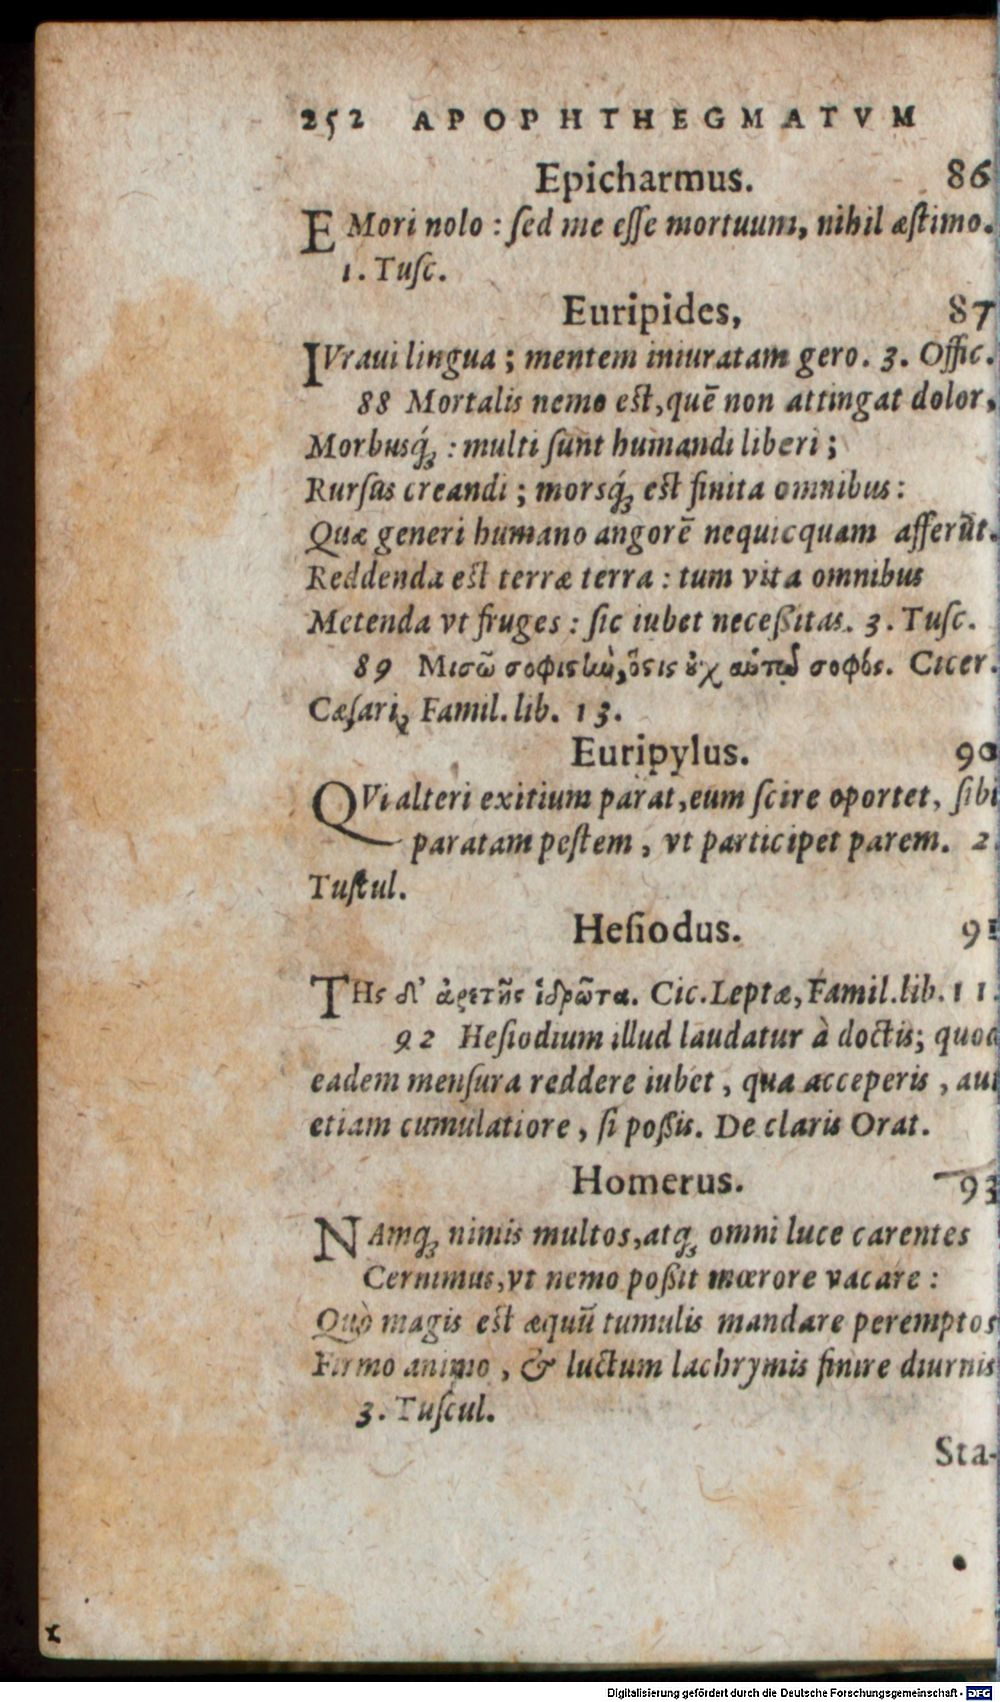 252 APOPHTHEGMATVM
Epicharmus. 86
EMori nolo : ſed me eſſe mortuum, nihil æſtimo.
1. Tuſc.
Euripides, 87
IVraui lingua ; mentem iniuratam gero. 3. Offic.
88 Mortalis nemo eſt, quē non attingat dolor,
Morbusq́ꝫ : multi ſunt humandi liberi ;
Rurſus creandi ; morsq́ꝫ eſt finita omnibus :
Quæ generi humano angorē nequicquam afferūt.
Reddenda eſt terræ terra : tum vita omnibus
Metenda vt fruges : ſic iubet neceßitas. 3. Tuſc.
89 Μισῶ σοφιςὴν, ὅςις ὀχ αὑτῷ σοφός. Cicer.
Cæſari, Famil. lib. 13.
Euripylus. 90
QVi alteri exitium parat, eum ſcire oportet, ſibi
paratam peſtem, vt participet parem. 2.
Tuſcul.
Heſiodus. 91
THς δ' ἀρετῆς ἱδρῶτα. Cic. Leptæ, Famil. lib. 11.
92 Heſiodium illud laudatur à doctis; quod
eadem menſura reddere iubet, qua acceperis, aut
etiam cumulatiore, ſi poßis. De claris Orat.
Homerus. 93
NAmqꝫ nimis multos, atqꝫ omni luce carentes
Cernimus, vt nemo poßit mœrore vacare :
Quò magis eſt æquū tumulis mandare peremptos
Firmo animo, & luctum lachrymis finire diurnis
3. Tuſcul.
Sta-
Digitalisierung gefördert durch die Deutsche Forschungsgemeinschaft - DFG